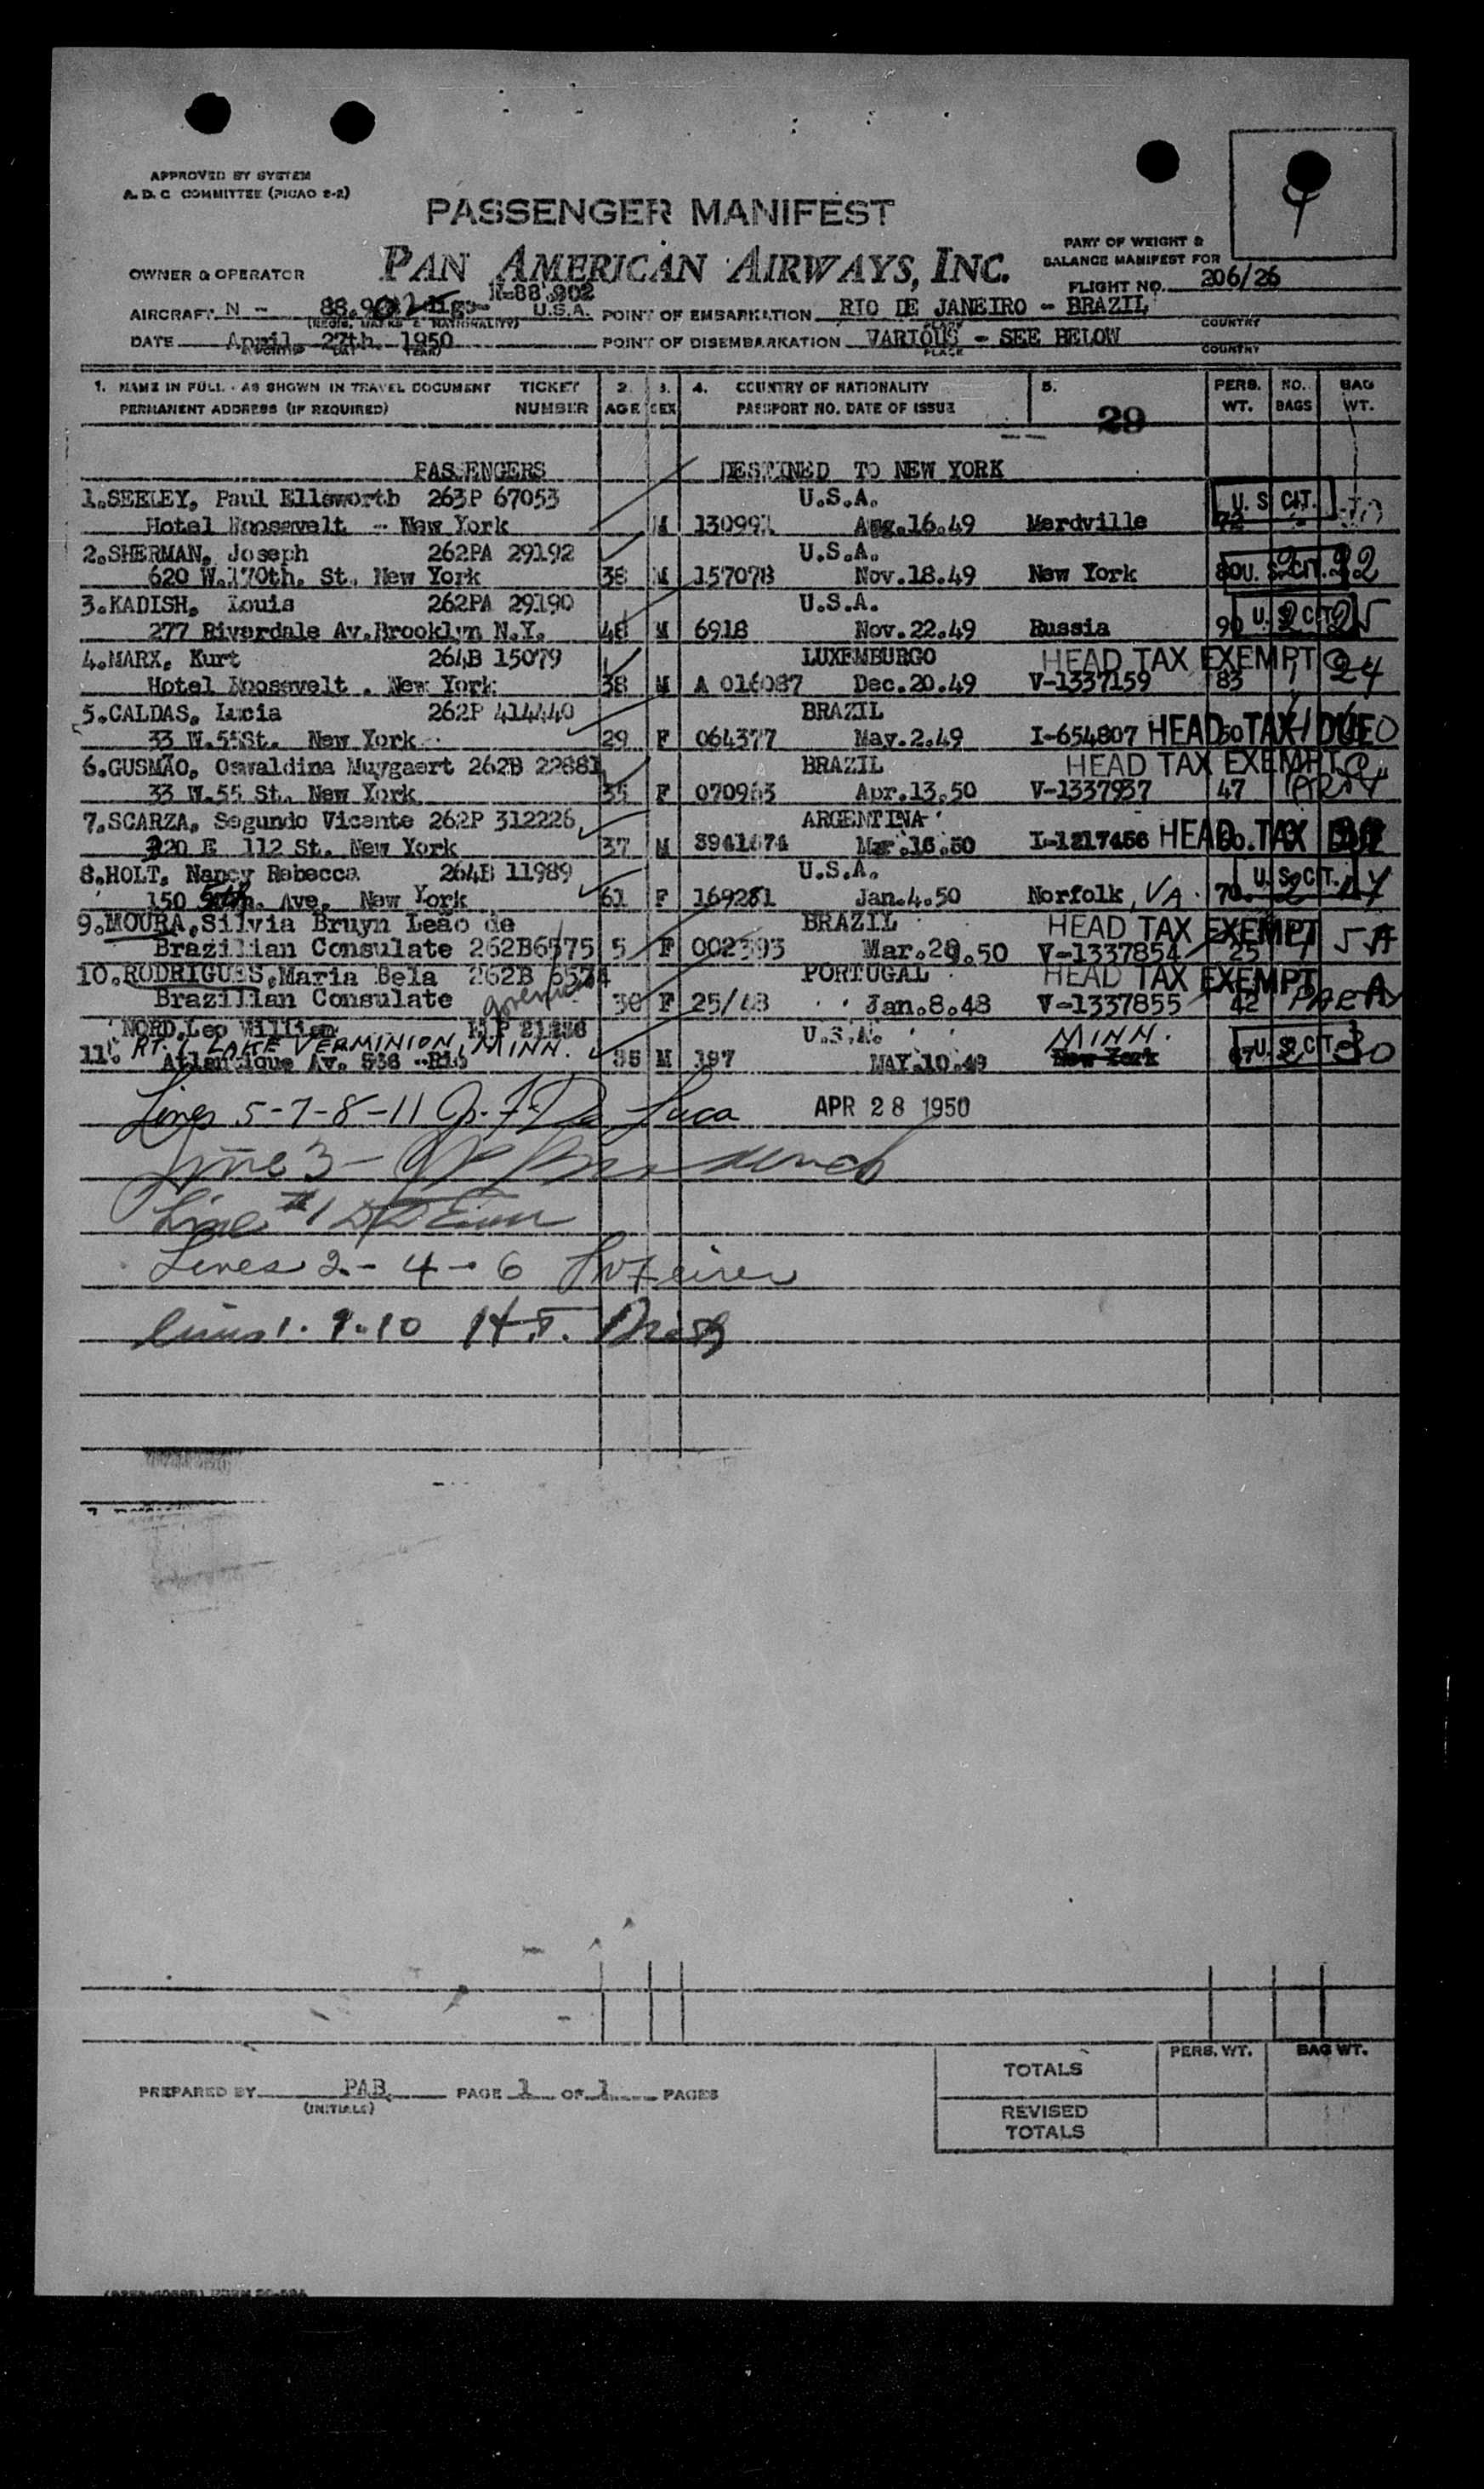 APPROVED BY SYSTEM
A. D. C COMMITTEE (PICAO 2-2)
PASSENGER MANIFEST
PAN AMERICAN AIRWAYS, INC.
PART OF WEIGHT &
BALANCE MANIFEST FOR
OWNER & OPERATOR
FLIGHT NO. 206/26
N-88.902
AIRCRAFT N - U.S.A. POINT OF EMBARKATION RIO DE JANEIRO - BRAZIL
(REGIS. MARKS & NATIONALITY) PLACE COUNTRY
DATE April 27th. 1950 POINT OF DISEMBARKATION VARIOUS - SEE BELOW
PLACE COUNTRY
1. NAME IN FULL - AS SHOWN IN TRAVEL DOCUMENT TICKET 2. 3. 4. COUNTRY OF NATIONALITY 5. PERS. NO. BAG
PERMANENT ADDRESS (IF REQUIRED) NUMBER AGE SEX PASSPORT NO. DATE OF ISSUE 29 WT. BAGS WT.
PASSENGERS DESTINED TO NEW YORK
1.SEELEY, Paul Ellsworth 263P 67053 U.S.A. U. S. CIT.
Hotel Roosevelt - New York M 13099 Aug.16.49 Merdville
2.SHERMAN, Joseph 262PA 29192 U.S.A.
620 W.170th. St. New York 38 M 157078 Nov.18.49 New York 80 U. S. CIT. 2 32
3.KADISH, Louis 262PA 29190 U.S.A.
277 Riverdale Av.Brooklyn N.Y. 48 M 6918 Nov.22.49 Russia 90 U. S. CIT. 2 25
4.MARX, Kurt 264B 15079 LUXEMBURGO HEAD TAX EXEMPT
Hotel Roosevelt . New York 38 M A 016087 Dec.20.49 V-1337159 83 1 24
5.CALDAS, Lucia 262P 414440 BRAZIL
33 W.55St. New York 29 F 064377 May.2.49 I-654807 HEAD TAX DUE
6.GUSMÃO, Oswaldina Muygaert 262B 22881 BRAZIL HEAD TAX EXEMPT
33 W.55 St. New York 35 F 070963 Apr.13.50 V-1337937 47
7.SCARZA, Segundo Vicente 262P 312226 ARGENTINA
320 E 112 St. New York 37 M 3941674 Mar.16.50 I-1217456 HEAD TAX DUE
8.HOLT, Nancy Rebecca 264B 11989 U.S.A.
150 5th. Ave. New York 61 F 169281 Jan.4.50 Norfolk, VA. 70 U. S. CIT.
9.MOURA,Silvia Bruyn Leão de BRAZIL HEAD TAX EXEMPT
Brazilian Consulate 262B6575 5 F 002393 Mar.20.50 V-1337854 25 1
10.RODRIGUES,Maria Bela 262B 6574 PORTUGAL HEAD TAX EXEMPT
Brazilian Consulate governess 30 F 25/48 Jan.8.48 V-1337855 42
NORD,Leo William U.S.A. MINN.
11. RT. 1 LAKE VERMINION, MINN.
Atlantique Av. 536 -Rio 35 M 197 MAY.10.49 New York U. S. CIT. 30
Lines 5-7-8-11 J. F. De Luca APR 28 1950
Line 3 -
Line #1
Lines 2 - 4 - 6
Lines 1. 9.10 H.T.
PREPARED BY PAB PAGE 1 OF 1 PAGES
(INITIALS)
PERS. WT. BAG WT.
TOTALS
REVISED
TOTALS